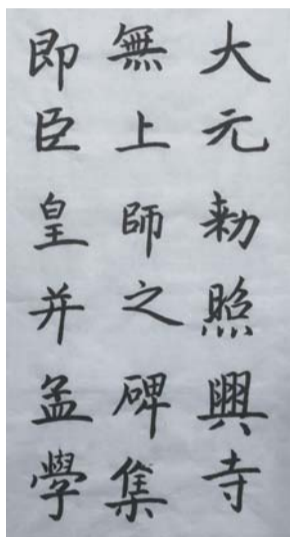 大元勅照興寺
無上師之碑集
即臣皇并孟學